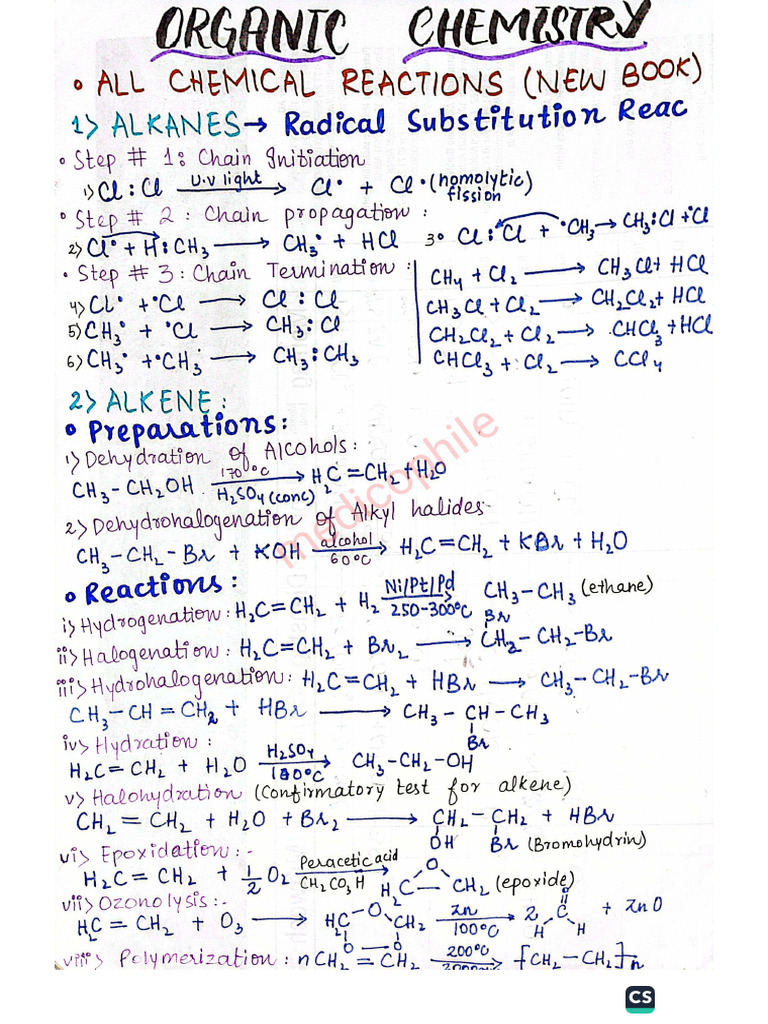 ORGANIC CHEMISTRY
• ALL CHEMICAL REACTIONS (NEW BOOK)
1> ALKANES → Radical Substitution Reac
• Step # 1: Chain Initiation
1) Cl : Cl —U.v light→ Cl• + Cl• (homolytic fission)
• Step # 2 : Chain propagation :
2) Cl• + H : CH₃ ⟶ CH₃• + HCl
3• Cl : Cl + •CH₃ → CH₃ : Cl + •Cl
• Step # 3 : Chain Termination :
4) Cl• + •Cl ⟶ Cl : Cl
5) CH₃• + •Cl ⟶ CH₃ : Cl
6) CH₃• + •CH₃ ⟶ CH₃ : CH₃
CH₄ + Cl₂ ⟶ CH₃Cl + HCl
CH₃Cl + Cl₂ ⟶ CH₂Cl₂ + HCl
CH₂Cl₂ + Cl₂ ⟶ CHCl₃ + HCl
CHCl₃ + Cl₂ ⟶ CCl₄
2> ALKENE :
• Preparations :
1) Dehydration of Alcohols :
CH₃–CH₂OH —170°C / H₂SO₄ (conc)→ H₂C=CH₂ + H₂O
2) Dehydrohalogenation of Alkyl halides
CH₃–CH₂–Br + KOH —alcohol / 60°C→ H₂C=CH₂ + KBr + H₂O
• Reactions :
i) Hydrogenation : H₂C=CH₂ + H₂ —Ni/Pt/Pd / 250-300°C→ CH₃–CH₃ (ethane)
Br
ii) Halogenation : H₂C=CH₂ + Br₂ ⟶ CH₂–CH₂–Br
iii) Hydrohalogenation : H₂C=CH₂ + HBr ⟶ CH₃–CH₂–Br
CH₃–CH=CH₂ + HBr ⟶ CH₃–CH–CH₃
Br
iv) Hydration :
H₂C=CH₂ + H₂O —H₂SO₄ / 100°C→ CH₃–CH₂–OH
v) Halohydration (Confirmatory test for alkene)
CH₂=CH₂ + H₂O + Br₂ ⟶ CH₂–CH₂ + HBr
OH Br (Bromohydrin)
vi) Epoxidation :-
H₂C=CH₂ + 1/2 O₂ —Peracetic acid / CH₂CO₃H→ H₂C–O–CH₂ (epoxide)
vii) Ozonolysis :-
H₂C=CH₂ + O₃ ⟶ H₂C–O–CH₂ —Zn / 100°C→ 2 H–C–H + ZnO
O O
O
viii) Polymerization : nCH₂=CH₂ —200°C→ [CH₂–CH₂]n
medicophile
CS